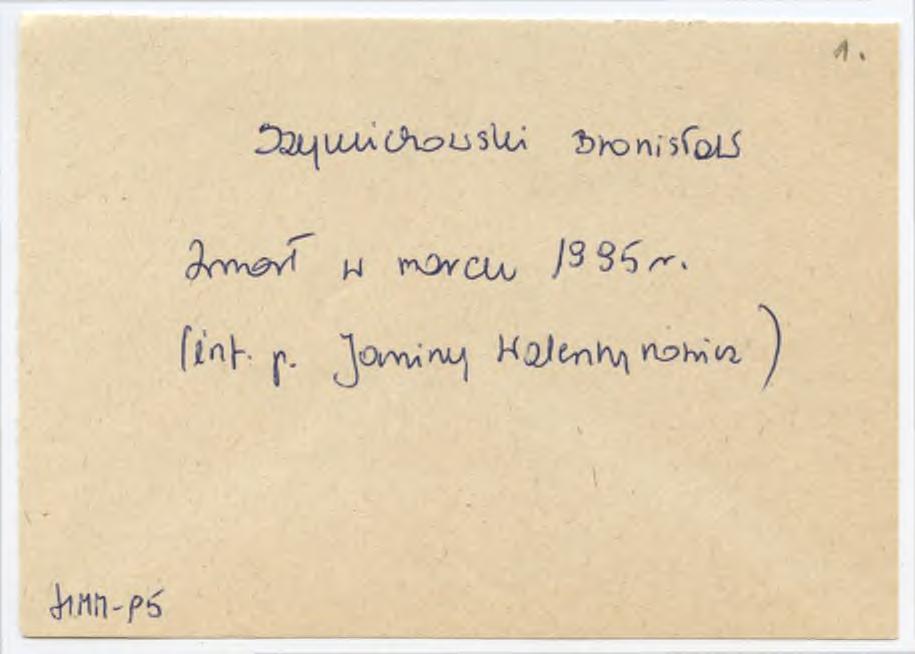 1.
Szymichowski Bronisław
Zmarł w marcu 1995 r.
(inf. p. Janiny Walentynowicz)